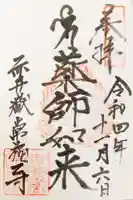 奉拝
令和四年十一月六日
薬師如来
赤井嶽常福寺